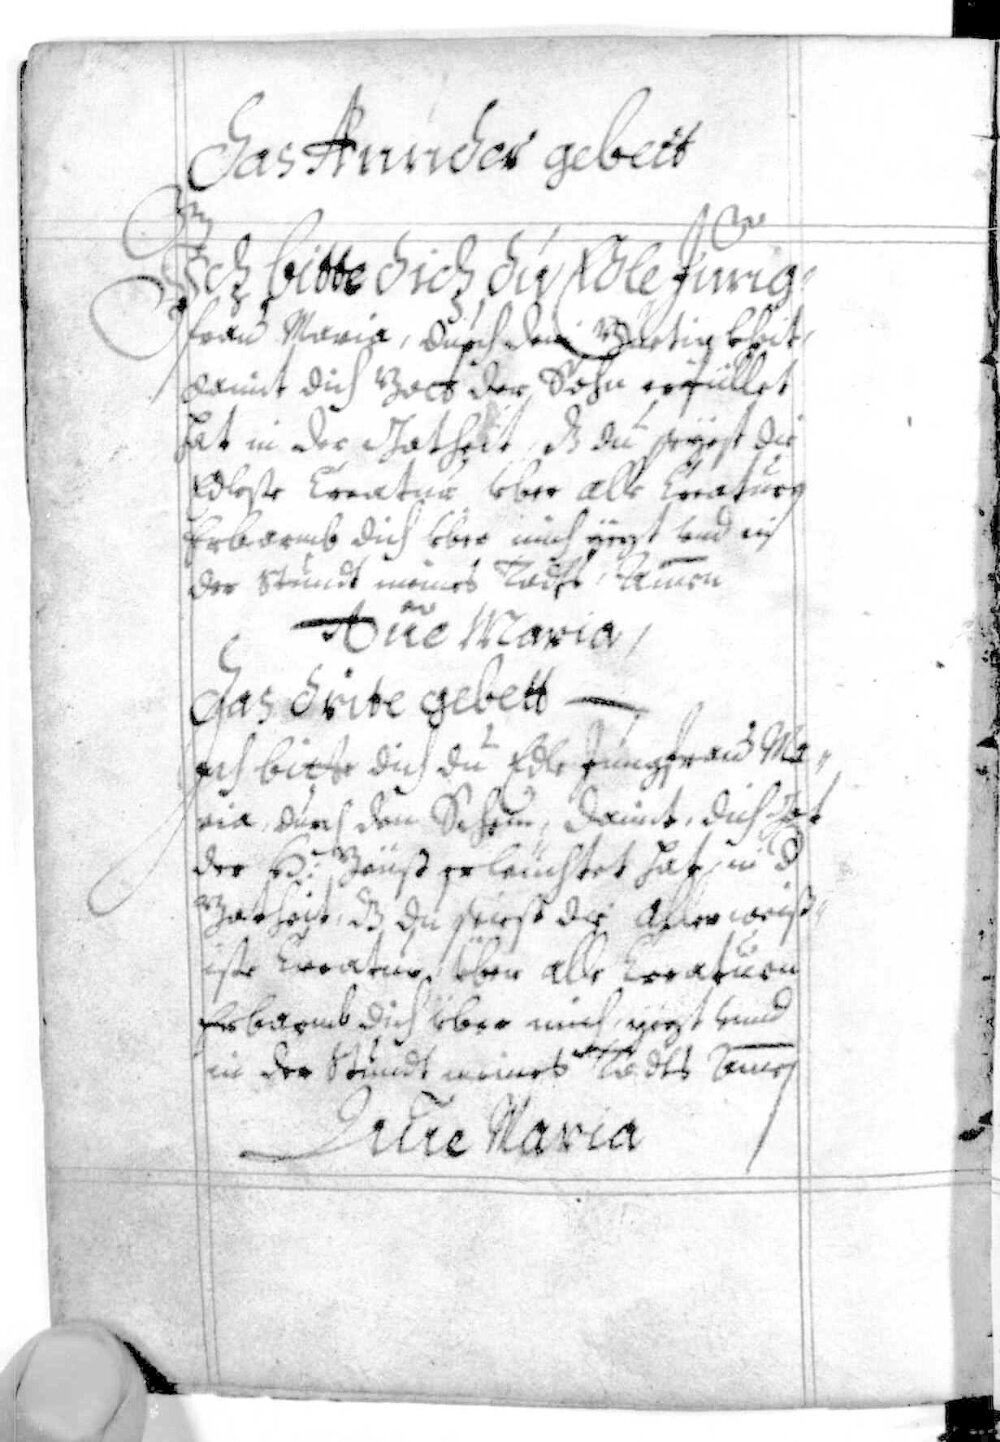 Das Annder gebett
Ich bitte dich du Edle Jung=
frau Maria, durch den
damit dich Gott der Sohn erfüllet
hat in der Gotheit, dz du seyest die
Edleste Creatur über alle Creaturn
Erbarmb dich über mich yezt und in
der Stundt meines Todts, Amen
Aue Maria,
Das drite gebett
Ich bitte dich du Edle Jungfrau Ma=
ria, durch den Schein, damit dich Got
der H: Geist erleuchtet hat, in d
Gotheit, dz du seiest die Allerweiß=
iste Creatur, über alle Creaturn
Erbarmb dich über mich yezt unnd
in der Stundt meines Todts Amen
Aue Maria